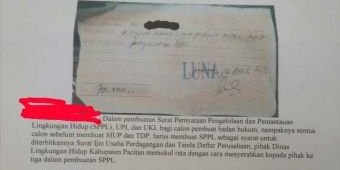 LUNAS
Dalam pembuatan Surat Pernyataan Pengelolaan dan Pemantauan
Lingkungan Hidup (SPPL), UPL dan UKL bagi calon pembuat badan hukum, nampaknya semua
calon sebelum membuat SIUP dan TDP, harus membuat SPPL sebagai syarat untuk
diterbitkannya Surat Ijin Usaha Perdagangan dan Tanda Daftar Perusahaan, pihak Dinas
Lingkungan Hidup Kabupaten Pacitan memukul rata dengan cara menyerahkan kepada pihak ke
tiga dalam pembuatan SPPL.